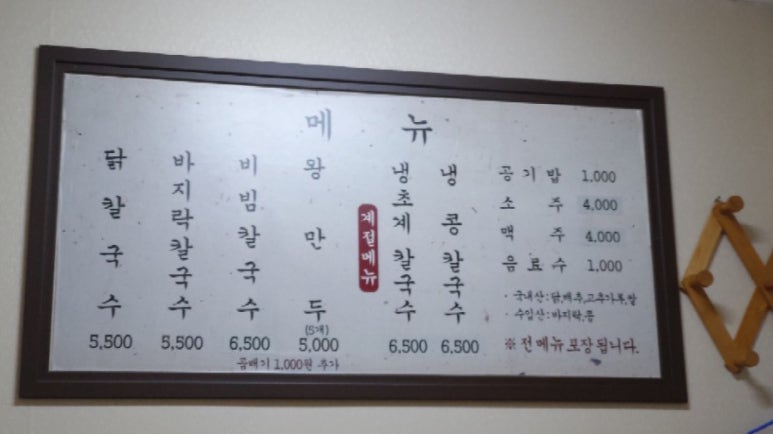 메뉴
닭칼국수 5,500
바지락칼국수 5,500
비빔칼국수 6,500
왕만두 (5개) 5,000
곱배기 1,000원 추가
계절메뉴
냉초계칼국수 6,500
냉콩칼국수 6,500
공기밥 1,000
소주 4,000
맥주 4,000
음료수 1,000
· 국내산:닭,배추,고추가루,쌀
· 수입산:바지락,콩
※ 전메뉴 포장됩니다.